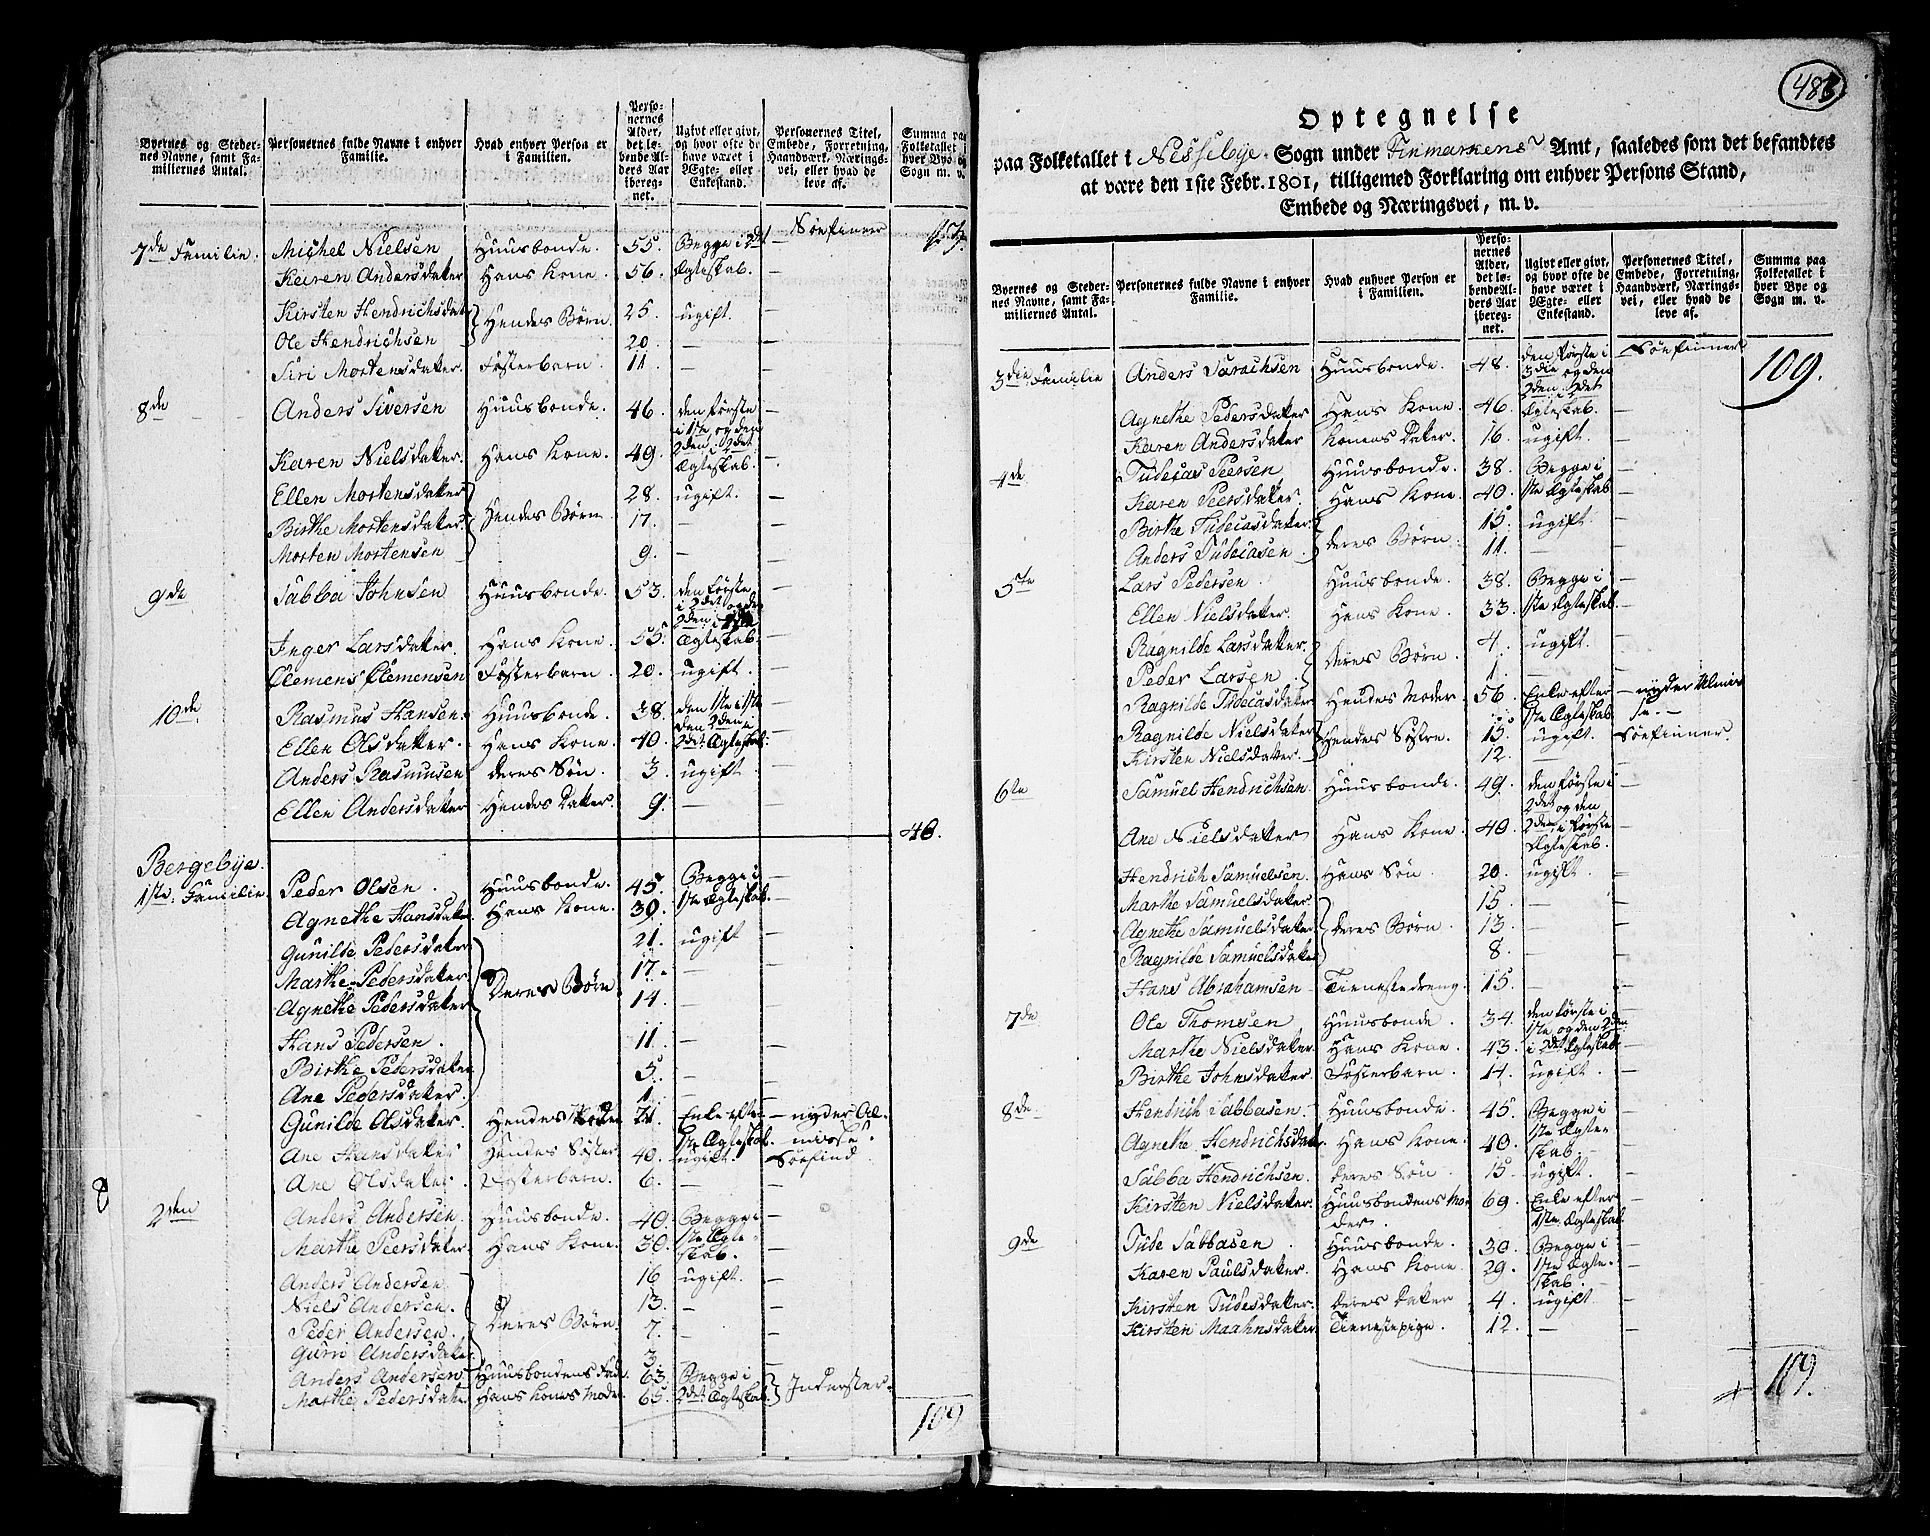 Byernes og Steder-
nes Navne, samt Fa-
miliernes Antal.
Personernes fulde Navne i enhver
Familie.
Hvad enhver Person er
i Familien.
Perso-
nernes
Alder,
det lø-
bende Al-
ders Aar
ibereg-
net.
Ugivt eller givt,
og hvor ofte de
have været i
Ægte- eller
Enkestand.
Personernes Titel,
Embede, Forretning,
Haandværk, Nærings-
vei, eller hvad de
leve af.
Summa paa
Folketallet i
hver Bye og
Sogn m. v.
7de Familie. Michel Nielsen Huusbonde. 55. Begge i 2det — Søefinner
Karen Andersdatter Hans Kone. 56. Ægteskab. —
Kirsten Hendrichsdat Hendes Børn. 25. ugift. —
Ole Hendrichsen 20. — —
Siri Mortensdatter Fosterbarn. 11. — —
8de Anders Siversen Huusbonde. 46. den første —
i 1ste og den
Karen Nielsdatter. Hans Kone. 49. 2den i 2det
Ægteskab. —
Ellen Mortensdatter Hendes Børn 28. ugift. —
Birthe Mortensdatter. 17. — —
Morten Mortensen 9. — —
9de Sabba Johnsen Huusbonde. 53. den første —
i 2det og den
2den i
Inger Larsdatter. Hans Kone. 55. Ægteskab. —
Clemens Clemensen Fosterbarn. 20. ugift. —
10de Rasmus Hansen. Huusbonde. 38. den 1ste i 1ste —
den 2den i
Ellen Olsdatter. Hans Kone. 40. 2det Ægteskab. —
Anders Rasmusen deres Søn. 3. ugift. —
Ellen Andersdatter Hendes Datter. 9. — —
48.
Bergebye.
1ste Familie. Peder Olsen. Huusbonde. 45. Begge i —
Agnethe Hansdatter Hans Kone. 39. 1ste Ægteskab. —
Gunilde Pedersdatter Deres Børn 21. ugift —
Marthe Pedersdatter 17. — —
Agnethe Pedersdatter 14. — —
Hans Pedersen. 11. — —
Birthe Pedersdatter 5. — —
Ane Pedersdatter. 1. — —
Gunilde Olsdatter. Hendes Moder 71. Enke efter — nyder Al-
1ste Ægteskab. misse.
Ane Hansdatter Hendes Søster 40. ugift. Søefind.
Ane Olsdatter. Fosterbarn. 6. — —
2den Anders Andersen. Huusbonde. 40. Begge i —
Marthe Peersdatter. Hans Kone. 30. 1ste Ægte- —
skab.
Anders Andersen Deres Børn. 16 ugift. —
Niels Andersen. 13. — —
Peder Andersen. 7. — —
Guri Andersdatter. 3. — —
Anders Andersen Huusbondens Fad. 63. Begge i Inderster.
Marthe Pedersdatter Hans Kones Mode 65. 2det Ægteskab.
109
8
486.
Optegnelse
paa Folketallet i Nessebye. Sogn under Finmarkens Amt, saaledes som det befandtes
at være den 1ste Febr. 1801, tilligemed Forklaring om enhver Persons Stand,
Embede og Næringsvei, m. v.
Byernes og Steder-
nes Navne, samt Fa-
miliernes Antal.
Personernes fulde Navne i enhver
Familie.
Hvad enhver Person er
i Familien.
Perso-
nernes
Alder,
det lø-
bende Al-
ders Aar
ibereg-
net.
Ugivt eller givt,
og hvor ofte de
have været i
Ægte- eller
Enkestand.
Personernes Titel,
Embede, Forretning,
Haandværk, Nærings-
vei, eller hvad de
leve af.
Summa paa
Folketallet i
hver Bye og
Sogn m. v.
3die Familie Anders Sarachsen Huusbonde. 48. den første i Søefinner 109.
3die og den
2den i 2det
Agnethe Pedersdatter Hans Kone. 46. Ægteskab. —
Karen Andersdatter Konens Datter. 16. ugift. —
4de Tudecas Peersen Huusbonde. 38. Begge i —
Karen Peersdatter Hans Kone 40. 1ste Ægteskab —
Birthe Tudecasdatter. deres Børn 15. ugift —
Anders Tudecasen. 11. — —
5te Lars Pedersen. Huusbonde. 38. Begge i —
Ellen Nielsdatter. Hans Kone. 33. 1ste Ægteskab. —
Ragnilde Larsdatter. deres Børn. 4. ugift. —
Peder Larsen. 1. — —
Ragnilde Tudecasdatter Hendes Moder 56. Enke efter — nyder Almis
1ste Ægteskab. se. —
Ragnilde Nielsdatter Hendes Søstre. 15. ugift. Søefinner.
Kirsten Nielsdatter. 12. — —
6te Samuel Hendrichsen. Huusbonde. 49. den første i —
2det og den
Ane Nielsdatter Hans Kone. 40. 2den i første —
Ægteskab.
Hendrich Samuelsen. Hans Søn. 20. ugift. —
Marthe Samuelsdatter. deres Børn. 15. — —
Agnethe Samuelsdatter 13. — —
Ragnilde Samuelsdatter 8. — —
Hans Abrahamsen Tienestedreng. 15. — —
7de Ole Thomsen Huusbonde. 34. den første i —
1ste og den 2den
Marthe Nielsdatter. Hans Kone. 43. i 2det Ægteskab —
Birthe Johnsdatter. Fosterbarn. 14. ugift. —
8de. Hendrich Sabbasen. Huusbonde. 45. Begge i —
1ste Ægte-
Agnethe Hendrichsdatter. Hans Kone. 40. skab. —
Sabba Hendrichsen. deres Søn 15. ugift. —
Kirsten Nielsdatter. Huusbondens Mo- 69. Enke efter —
der. 1ste Ægteskab.
9de Tude Sabbasen. Huusbonde. 30. Begge i —
Karen Paulsdatter. Hans Kone. 29. 1ste Ægte- —
skab.
Kirsten Tudesdatter. deres Datter 4. ugift —
Kirsten Maahnsdatter Tienestepige. 12. — —
119.